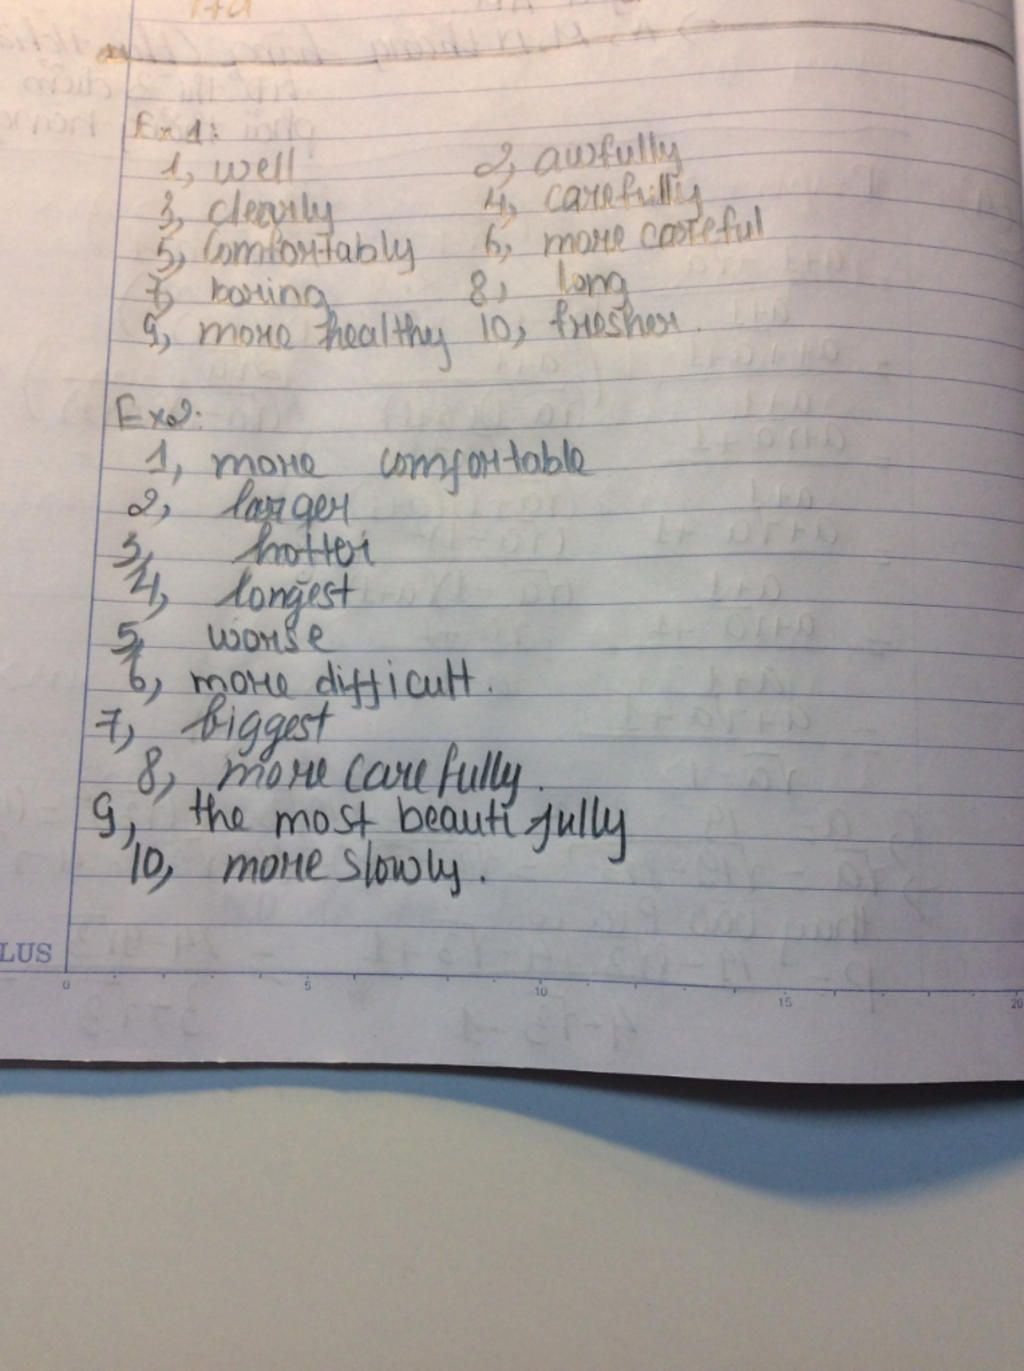 Ex1:
1, well 2, awfully
3, clearly 4, carefully
5, comfortably 6, more careful
7, boring 8, long
9, more healthy 10, fresher.
Ex2:
1, more comfortable
2, larger
3, hotter
4, longest
5, worse
6, more difficult.
7, biggest
8, more carefully.
9, the most beautifully
10, more slowly.
LUS
0 5 10 15 20